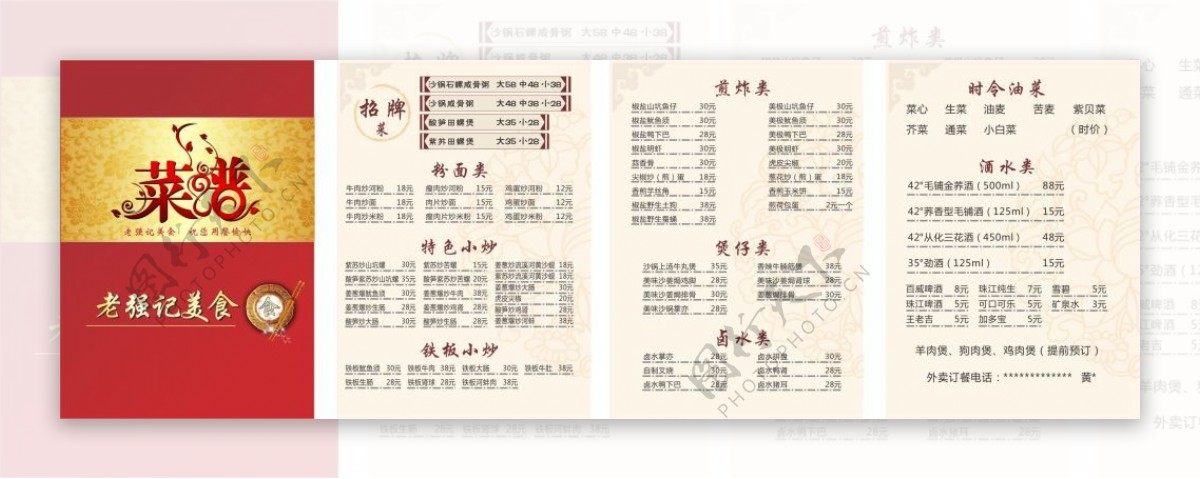 菜谱
老强记美食 祝您用餐愉快
老强记美食
招牌菜
沙锅石螺咸骨粥 大58 中48 小38
沙锅咸骨粥 大48 中38 小28
酸笋田螺煲 大35 小28
紫苏田螺煲 大35 小28
粉面类
牛肉炒河粉 18元 瘦肉炒河粉 15元 鸡蛋炒河粉 12元
牛肉炒面 18元 肉片炒面 15元 鸡蛋炒面 12元
牛肉炒米粉 18元 瘦肉片炒米粉 15元 鸡蛋炒米粉 12元
特色小炒
紫苏炒山坑螺 30元 紫苏炒苦螺 15元 姜葱炒流溪河黄沙蚬 18元
酸笋紫苏炒山坑螺 35元 酸笋炒苦螺 20元 紫苏炒流溪河黄沙蚬 18元
姜葱爆炒大肠 30元
姜葱爆鱿鱼须 30元 姜葱爆炒牛肉 38元 虎皮尖椒 20元
姜葱爆炒生肠 28元 姜葱爆炒鸡杂 28元 酸笋炒鸡肾 28元
酸笋炒大肠 30元 酸笋炒生肠 28元 姜葱爆炒河蚬 38元
铁板小炒
铁板鱿鱼须 30元 铁板牛肉 38元 铁板大肠 30元 铁板牛肚 38元
铁板生肠 28元 铁板肾球 28元 铁板河蚌肉 38元
煎炸类
椒盐山坑鱼仔 30元 美极山坑鱼仔 30元
椒盐鱿鱼须 30元 美极鱿鱼须 30元
椒盐鸭下巴 28元 美极鸭下巴 28元
椒盐明虾 30元 美极明虾 30元
蒜香骨 30元 虎皮尖椒 20元
尖椒炒（煎）蛋 18元 葱花炒（煎）蛋 15元
香煎芋丝角 18元 香煎玉米饼 15元
椒盐野生土狗 38元 煎荷包蛋 2元一个
椒盐野生毫蛹 38元
煲仔类
沙锅上汤牛丸煲 35元 香辣牛腩筋煲 38元
美味沙姜焗鸡脚 28元 美味沙姜焗肾球 28元
美味沙姜焗排骨 30元 姜葱焗排骨 30元
美味沙锅草方 28元
卤水类
卤水掌亦 28元 卤水拼盘 30元
自制叉烧 30元 卤水鸭肾 28元
卤水鸭下巴 28元 卤水猪耳 28元
时令油菜
菜心 生菜 油麦 苦麦 紫贝菜
芥菜 通菜 小白菜 （时价）
酒水类
42°毛铺金荞酒（500ml） 88元
42°荞香型毛铺酒（125ml） 15元
42°从化三花酒（450ml） 48元
35°劲酒（125ml） 15元
百威啤酒 8元 珠江纯生 7元 雪碧 5元
珠江啤酒 5元 可口可乐 5元 矿泉水 3元
王老吉 5元 加多宝 5元
羊肉煲、狗肉煲、鸡肉煲（提前预订）
外卖订餐电话：************* 黄*